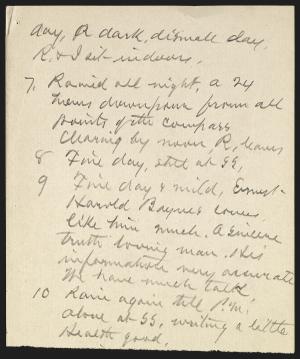 day, A dark, dismal day,
R. & I sit indoors.
7, Rained all night, a 24
hours downpour from all
points of the compass
clearing by noon R, leaves
8 Fine day, still at SS,
9 Fine day & mild, Ernest
Harold Baynes comes,
like him much. A sincere
truth loving man. His
information very accurate
We have much talk,
10 Rain again till P.M.
alone at SS, writing a little
Health good.